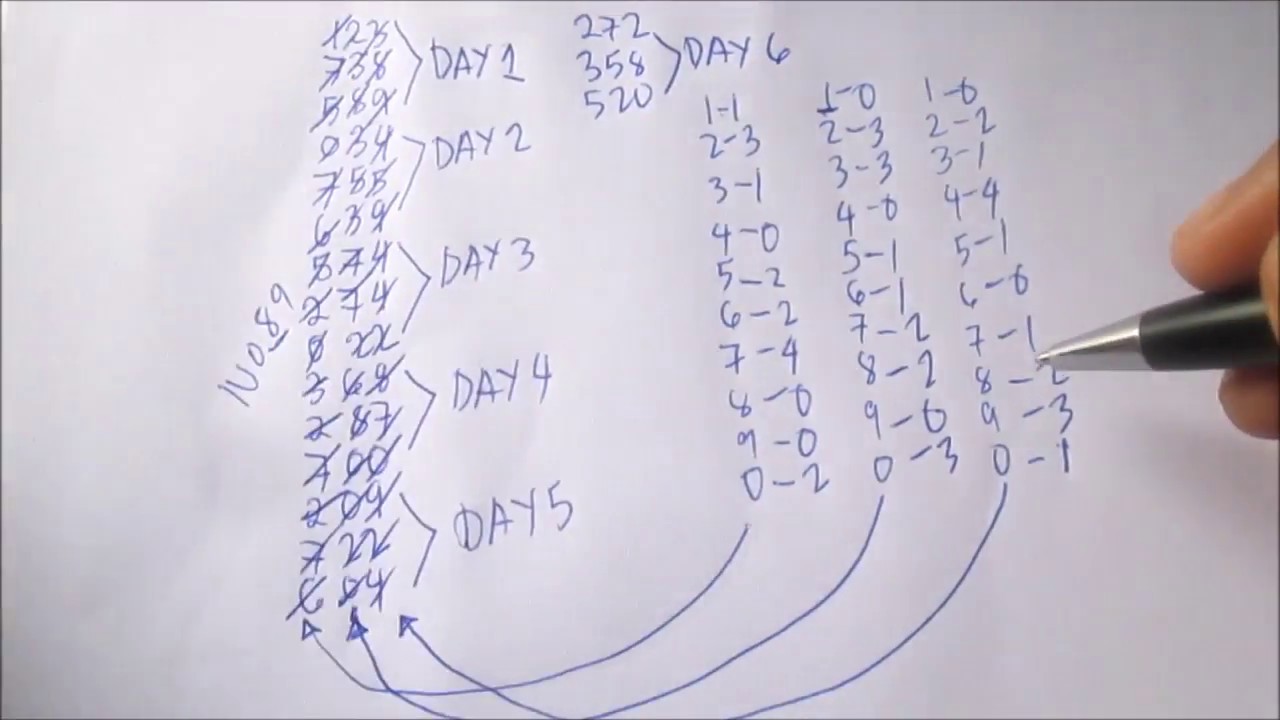 123
738 DAY 1
589
034
755 DAY 2
639
874 DAY 3
274
0 22
368 DAY 4
287
700
209
722 DAY 5
604
NO 89
272
358 DAY 6
520
1-1
2-3
3-1
4-0
5-2
6-2
7-4
8-0
9-0
0-2
1-0
2-3
3-3
4-0
5-1
6-1
7-2
8-2
9-0
0-3
1-0
2-2
3-1
4-4
5-1
6-0
7-1
8-2
9-3
0-1